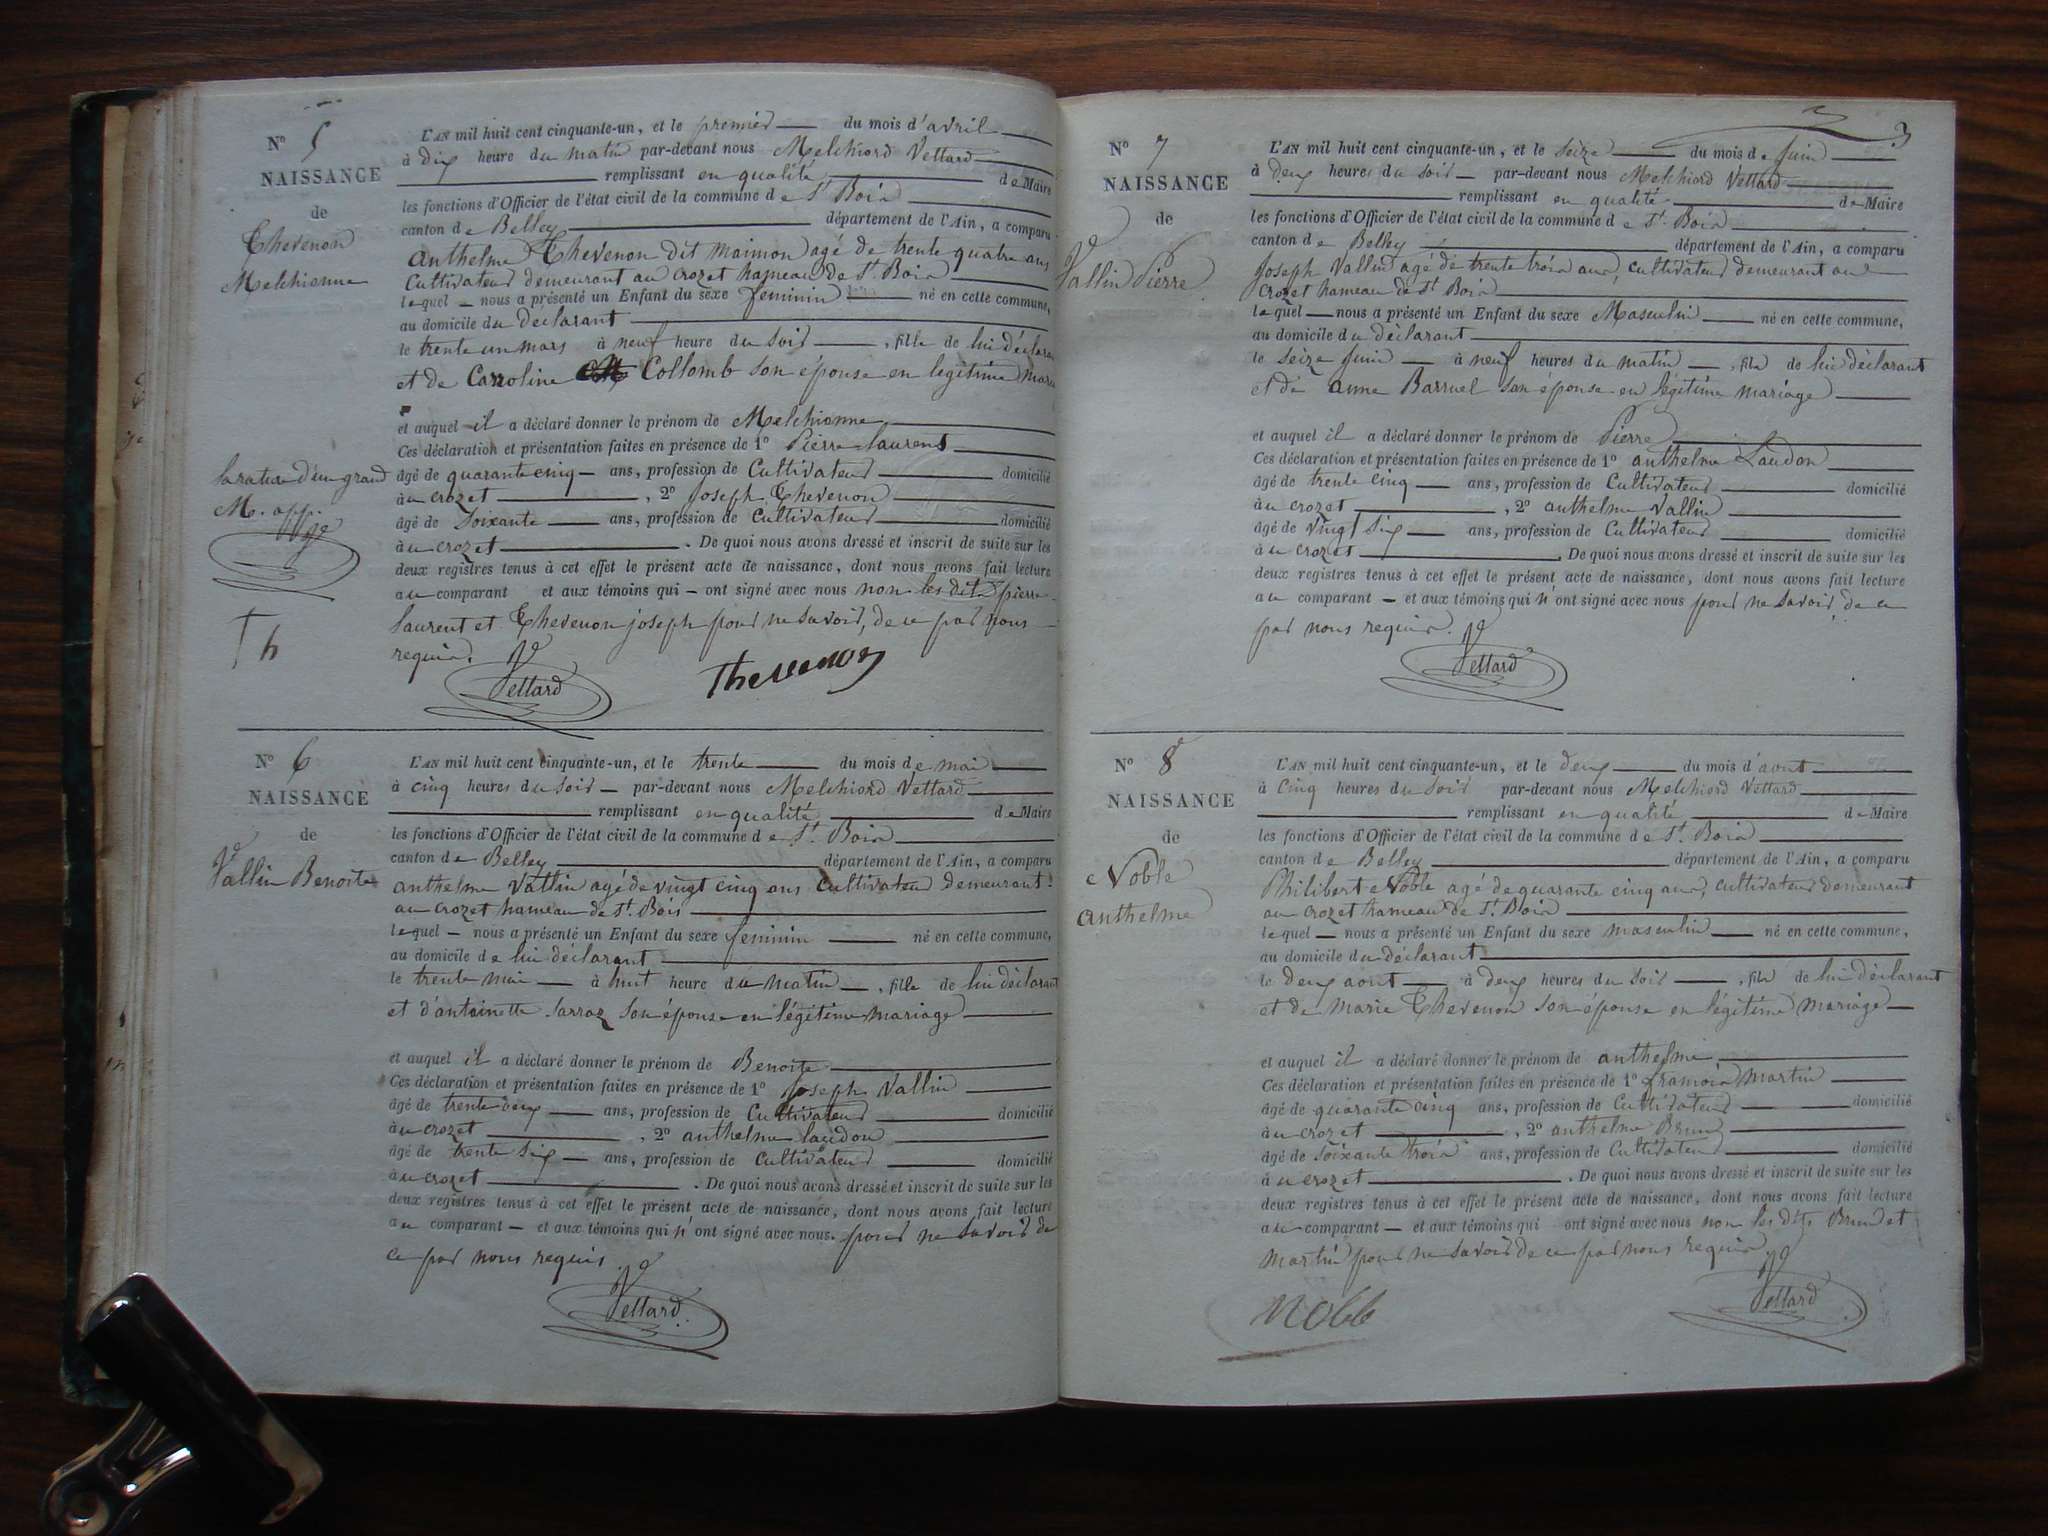 N° 5
NAISSANCE
de
Thevenon
Melchionne
la rature d'un grand
M. app.
Th
L'AN mil huit cent cinquante-un, et le premier du mois d'avril
à dix heure du matin par-devant nous Melchiord Vettard
remplissant en qualité de Maire
les fonctions d'Officier de l'état civil de la commune de St. Bois
canton de Belley département de l'Ain, a comparu
anthelme Thevenon dit maimon agé de trente quatre ans
Cultivateur demeurant au crozet hameau de St. Bois
lequel nous a présenté un Enfant du sexe feminin né en cette commune,
au domicile du déclarant
le trente un mars à neuf heure du soir , fille de lui déclara
et de Carroline Collomb son épouse en legitime maria
et auquel il a déclaré donner le prénom de Melchionne
Ces déclaration et présentation faites en présence de 1° Pierre laurent
âgé de quarante cinq ans, profession de Cultivateur domicilié
à u crozet , 2° joseph Thevenon
âgé de Soixante ans, profession de Cultivateur domicilié
à u crozet . De quoi nous avons dressé et inscrit de suite sur les
deux registres tenus à cet effet le présent acte de naissance, dont nous avons fait lecture
au comparant et aux témoins qui ont signé avec nous non les dits pierre
laurent et Thevenon joseph pour ne savoir, de ce par nous
requis.
Vettard Thevenon
N° 6
NAISSANCE
de
Vallin Benoite
L'AN mil huit cent cinquante-un, et le trente du mois de mai
à cinq heures du soir par-devant nous Melchiord Vettard
remplissant en qualité de Maire
les fonctions d'Officier de l'état civil de la commune de St. Bois
canton de Belley département de l'Ain, a comparu
anthelme Vallin agé de vingt cinq ans cultivateur demeurant
au crozet hameau de St. Bois
lequel nous a présenté un Enfant du sexe feminin né en cette commune,
au domicile de lui déclarant
le trente mai à huit heure du matin , fille de lui déclarant
et d'antoinette Sarraz son épouse en légitime mariage
et auquel il a déclaré donner le prénom de Benoite
Ces déclaration et présentation faites en présence de 1° joseph Vallin
âgé de trente ans, profession de Cultivateur domicilié
à u crozet , 2° anthelme laudon
âgé de trente six ans, profession de Cultivateur domicilié
à u crozet . De quoi nous avons dressé et inscrit de suite sur les
deux registres tenus à cet effet le présent acte de naissance, dont nous avons fait lecture
au comparant et aux témoins qui n'ont signé avec nous. pour ne savoir de
ce par nous requis
Vettard
3
N° 7
NAISSANCE
de
Vallin Pierre
L'AN mil huit cent cinquante-un, et le seize du mois de juin
à deux heures du soir par-devant nous Melchiord Vettard
remplissant en qualité de Maire
les fonctions d'Officier de l'état civil de la commune de St. Bois
canton de Belley département de l'Ain, a comparu
joseph Vallin agé de trente trois ans, cultivateur demeurant au
crozet hameau de St Bois
lequel nous a présenté un Enfant du sexe Masculin né en cette commune,
au domicile du déclarant
le seize juin à neuf heures du matin , fils de lui déclarant
et de anne Barruel son épouse en légitime mariage
et auquel il a déclaré donner le prénom de Pierre
Ces déclaration et présentation faites en présence de 1° anthelme Laudon
âgé de trente cinq ans, profession de Cultivateur domicilié
à u crozet , 2° anthelme Vallin
âgé de vingt six ans, profession de Cultivateur domicilié
à u crozet . De quoi nous avons dressé et inscrit de suite sur les
deux registres tenus à cet effet le présent acte de naissance, dont nous avons fait lecture
au comparant et aux témoins qui n'ont signé avec nous pour ne savoir de ce
par nous requis.
Vettard
N° 8
NAISSANCE
de
Noble
anthelme
L'AN mil huit cent cinquante-un, et le deux du mois d'aout
à cinq heures du soir par-devant nous Melchiord Vettard
remplissant en qualité de Maire
les fonctions d'Officier de l'état civil de la commune de St. Bois
canton de Belley département de l'Ain, a comparu
Philibert Noble agé de quarante cinq ans, cultivateur demeurant
au crozet hameau de St. Bois
lequel nous a présenté un Enfant du sexe masculin né en cette commune,
au domicile du déclarant
le deux aout à deux heures du soir , fils de lui déclarant
et de marie Thevenon son épouse en légitime mariage
et auquel il a déclaré donner le prénom de anthelme
Ces déclaration et présentation faites en présence de 1° framois martin
âgé de quarante cinq ans, profession de Cultivateur domicilié
à u crozet , 2° anthelme Brun
âgé de soixante trois ans, profession de Cultivateur domicilié
à u crozet . De quoi nous avons dressé et inscrit de suite sur les
deux registres tenus à cet effet le présent acte de naissance, dont nous avons fait lecture
au comparant et aux témoins qui ont signé avec nous non les dits Brun et
martin pour ne savoir de ce par nous requis
Noble Vettard